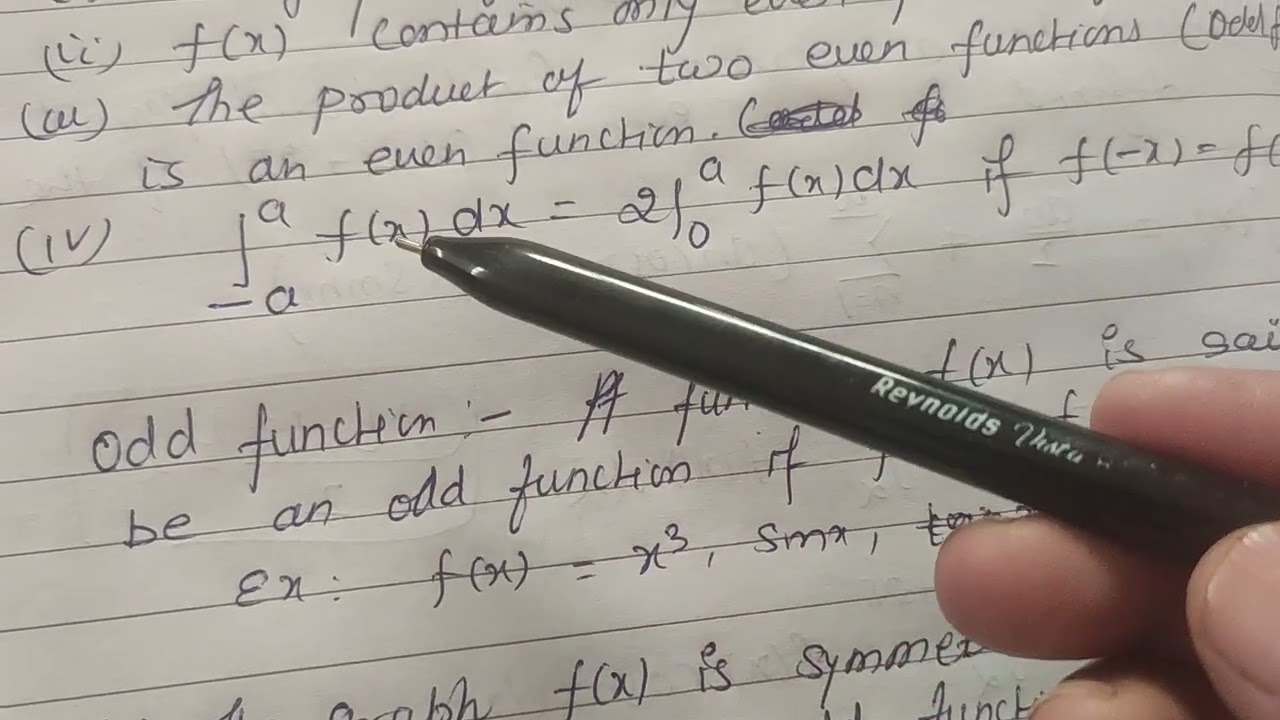 (ii) f(x) contains only
(iii) the product of two even functions (odd
is an even function.
(iv) ∫_{-a}^{a} f(x) dx = 2∫_0^a f(x) dx if f(-x) = f(
odd function :- A fun f(x) is sai
be an odd function if f
Ex: f(x) = x³, sinx,
graph f(x) is symme
functi
Reynolds